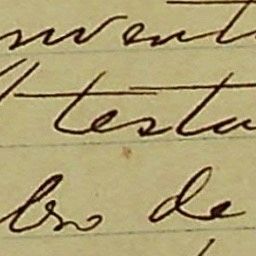 nvent
testa
bro de